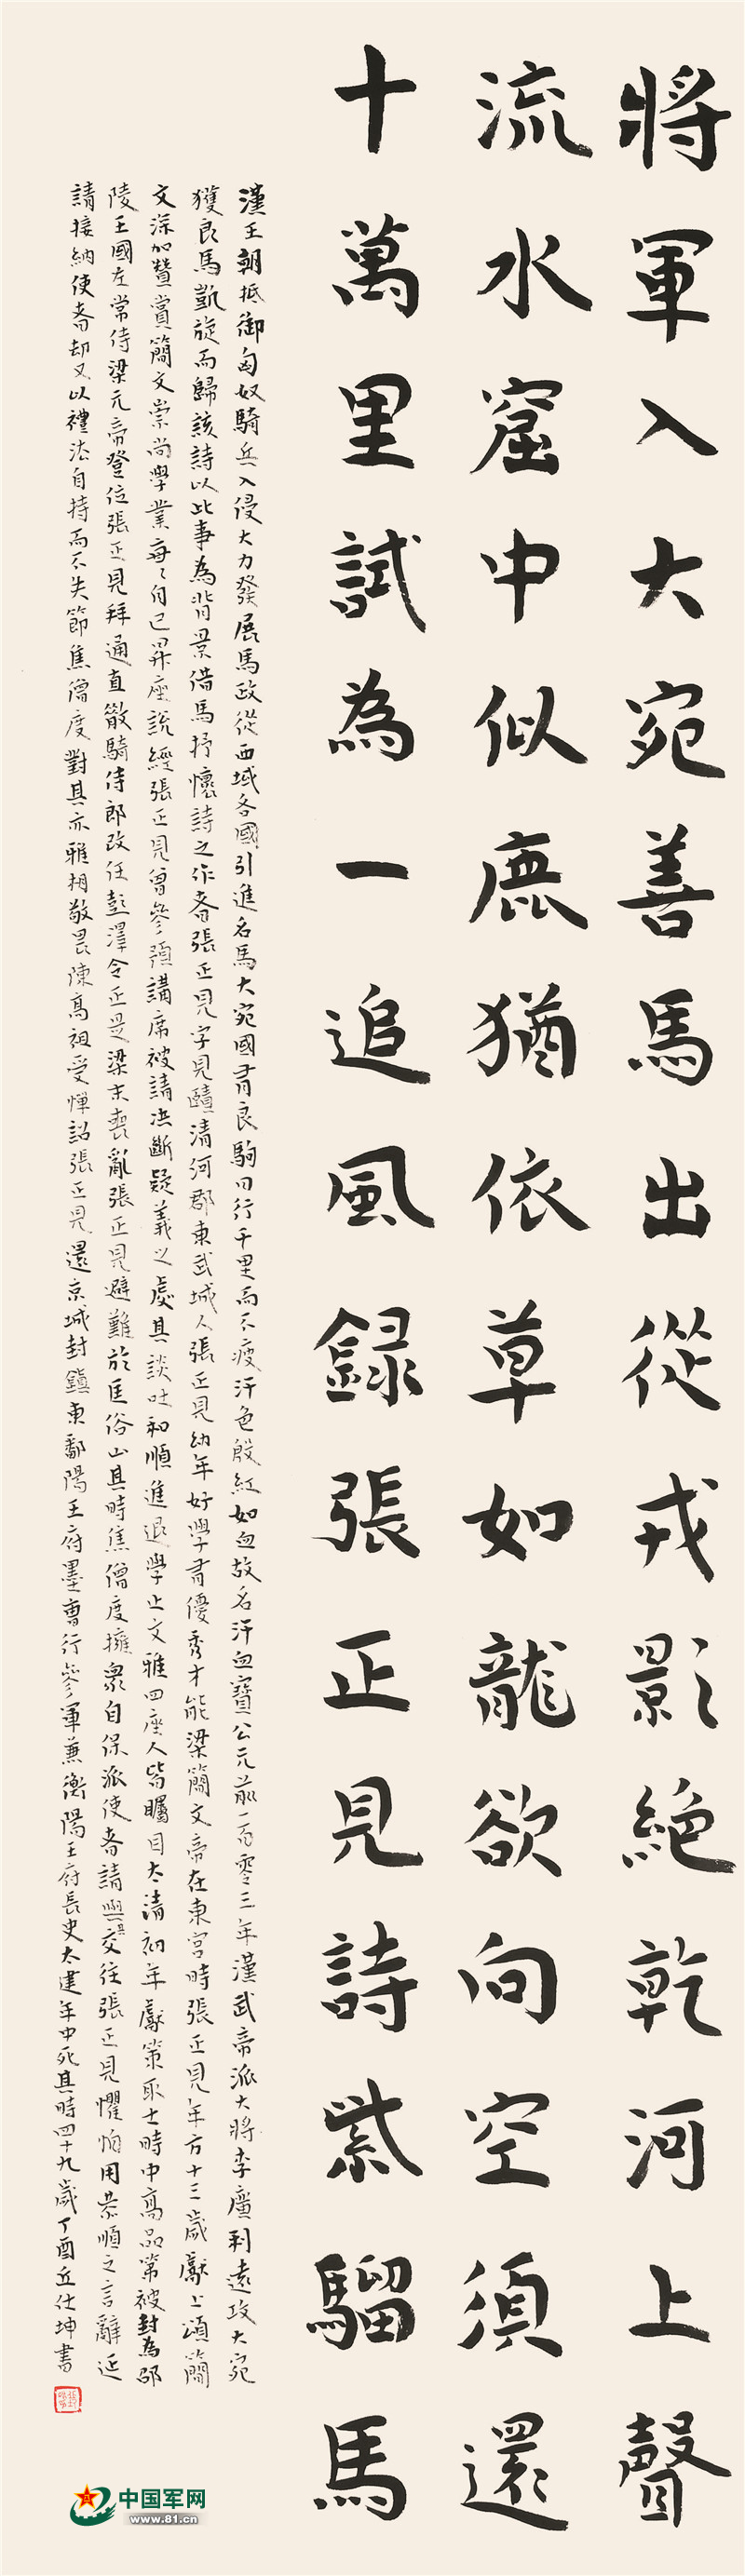 將軍入大宛善馬出從戎影絕乾河上聲
流水窟中似鹿猶依草如龍欲向空須還
十萬里試為一追風録張正見詩紫騮馬
漢王朝抵御匈奴騎兵入侵大力發展馬政從西域各國引進名馬大宛國有良駒日行千里而不疲汗色殷紅如血故名汗血寶公元前一百零三年漢武帝派大將李廣利遠攻大宛
獲良馬凱旋而歸該詩以此事為背景借馬抒懷詩之作者張正見字見賾清河郡東武城人張正見幼年好學有優秀才能梁簡文帝在東宮時張正見年方十三歲獻上頌簡
文深加贊賞簡文崇尚學業每每自己昇座説經張正見曾參預講席被請決斷疑義之處其談吐和順進退學止文雅四座人皆矚目太清初年獻策取士時中高品第被封為邵
陵王國左常侍梁元帝登位張正見拜通直散騎侍郎改任彭澤令正是梁末喪亂張正見避難於匡俗山其時焦僧度擁衆自保派使者請與其交往張正見懼怕用恭順之言辭延
請接納使者却又以禮法自持而不失節焦僧度對其亦雅相敬畏陳高祖受憚詔張正見還京城封鎮東鄱陽王府墨曹行參軍兼衡陽王府長史太建年中死其時四十九歲丁酉丘仕坤書
中国军网
www.81.cn